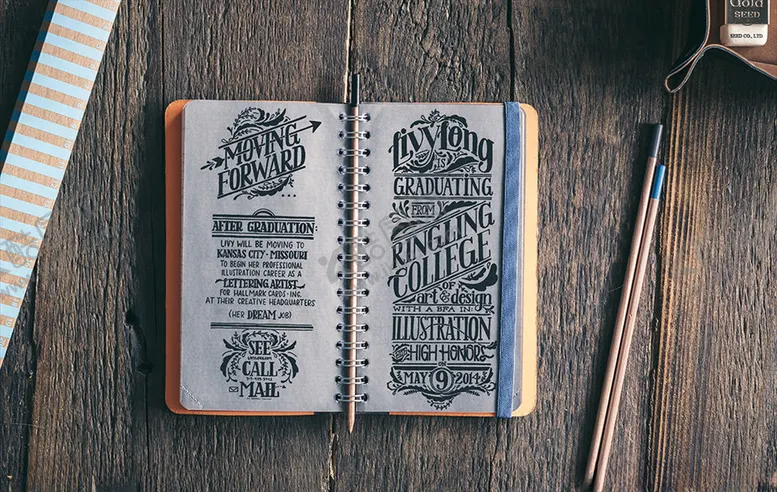 MOVING
FORWARD
...
AFTER GRADUATION:
LIVY WILL BE MOVING TO
KANSAS CITY · MISSOURI
TO BEGIN HER PROFESSIONAL
ILLUSTRATION CAREER AS A
LETTERING ARTIST
FOR HALLMARK CARDS · INC.
AT THEIR CREATIVE HEADQUARTERS
(HER DREAM JOB)
SEE
CALL
MAIL
Livy Long
IS
GRADUATING
FROM
RINGLING
COLLEGE
OF
art & design
WITH A BFA IN:
ILLUSTRATION
HIGH HONORS
MAY 9 2014
Gold
SEED
SEED CO., LTD